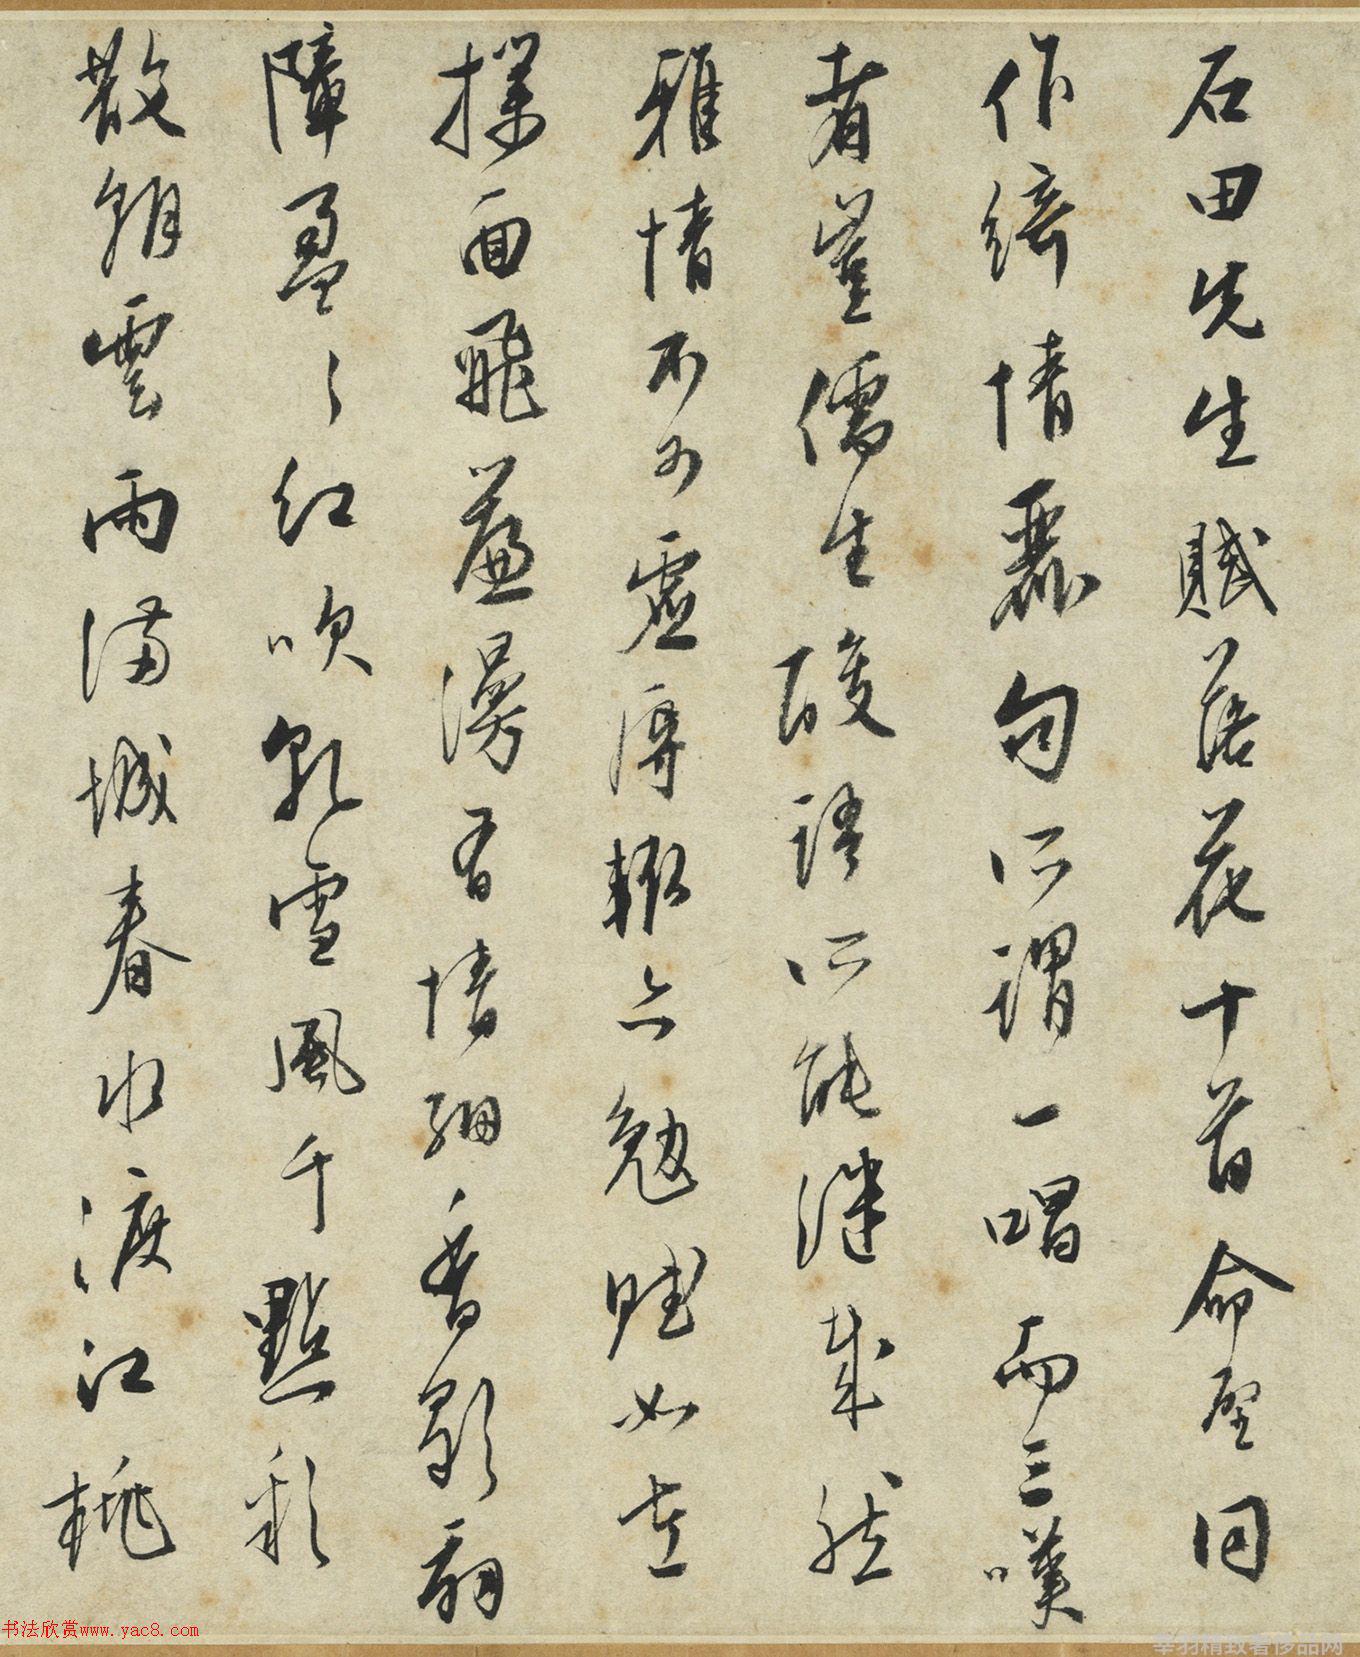 石田先生賦落花十首命壁同
作綺情麗句所謂一唱而三嘆
者豈儒生酸語所能繼哉然
雅情不可虛辱輒亦勉賦如左
撲面飛簾漫有情細香歌扇
障盈々紅吹乾雪風千點彩
散朝雲雨滿城春水渡江桃
书法欣赏www.yac8.com